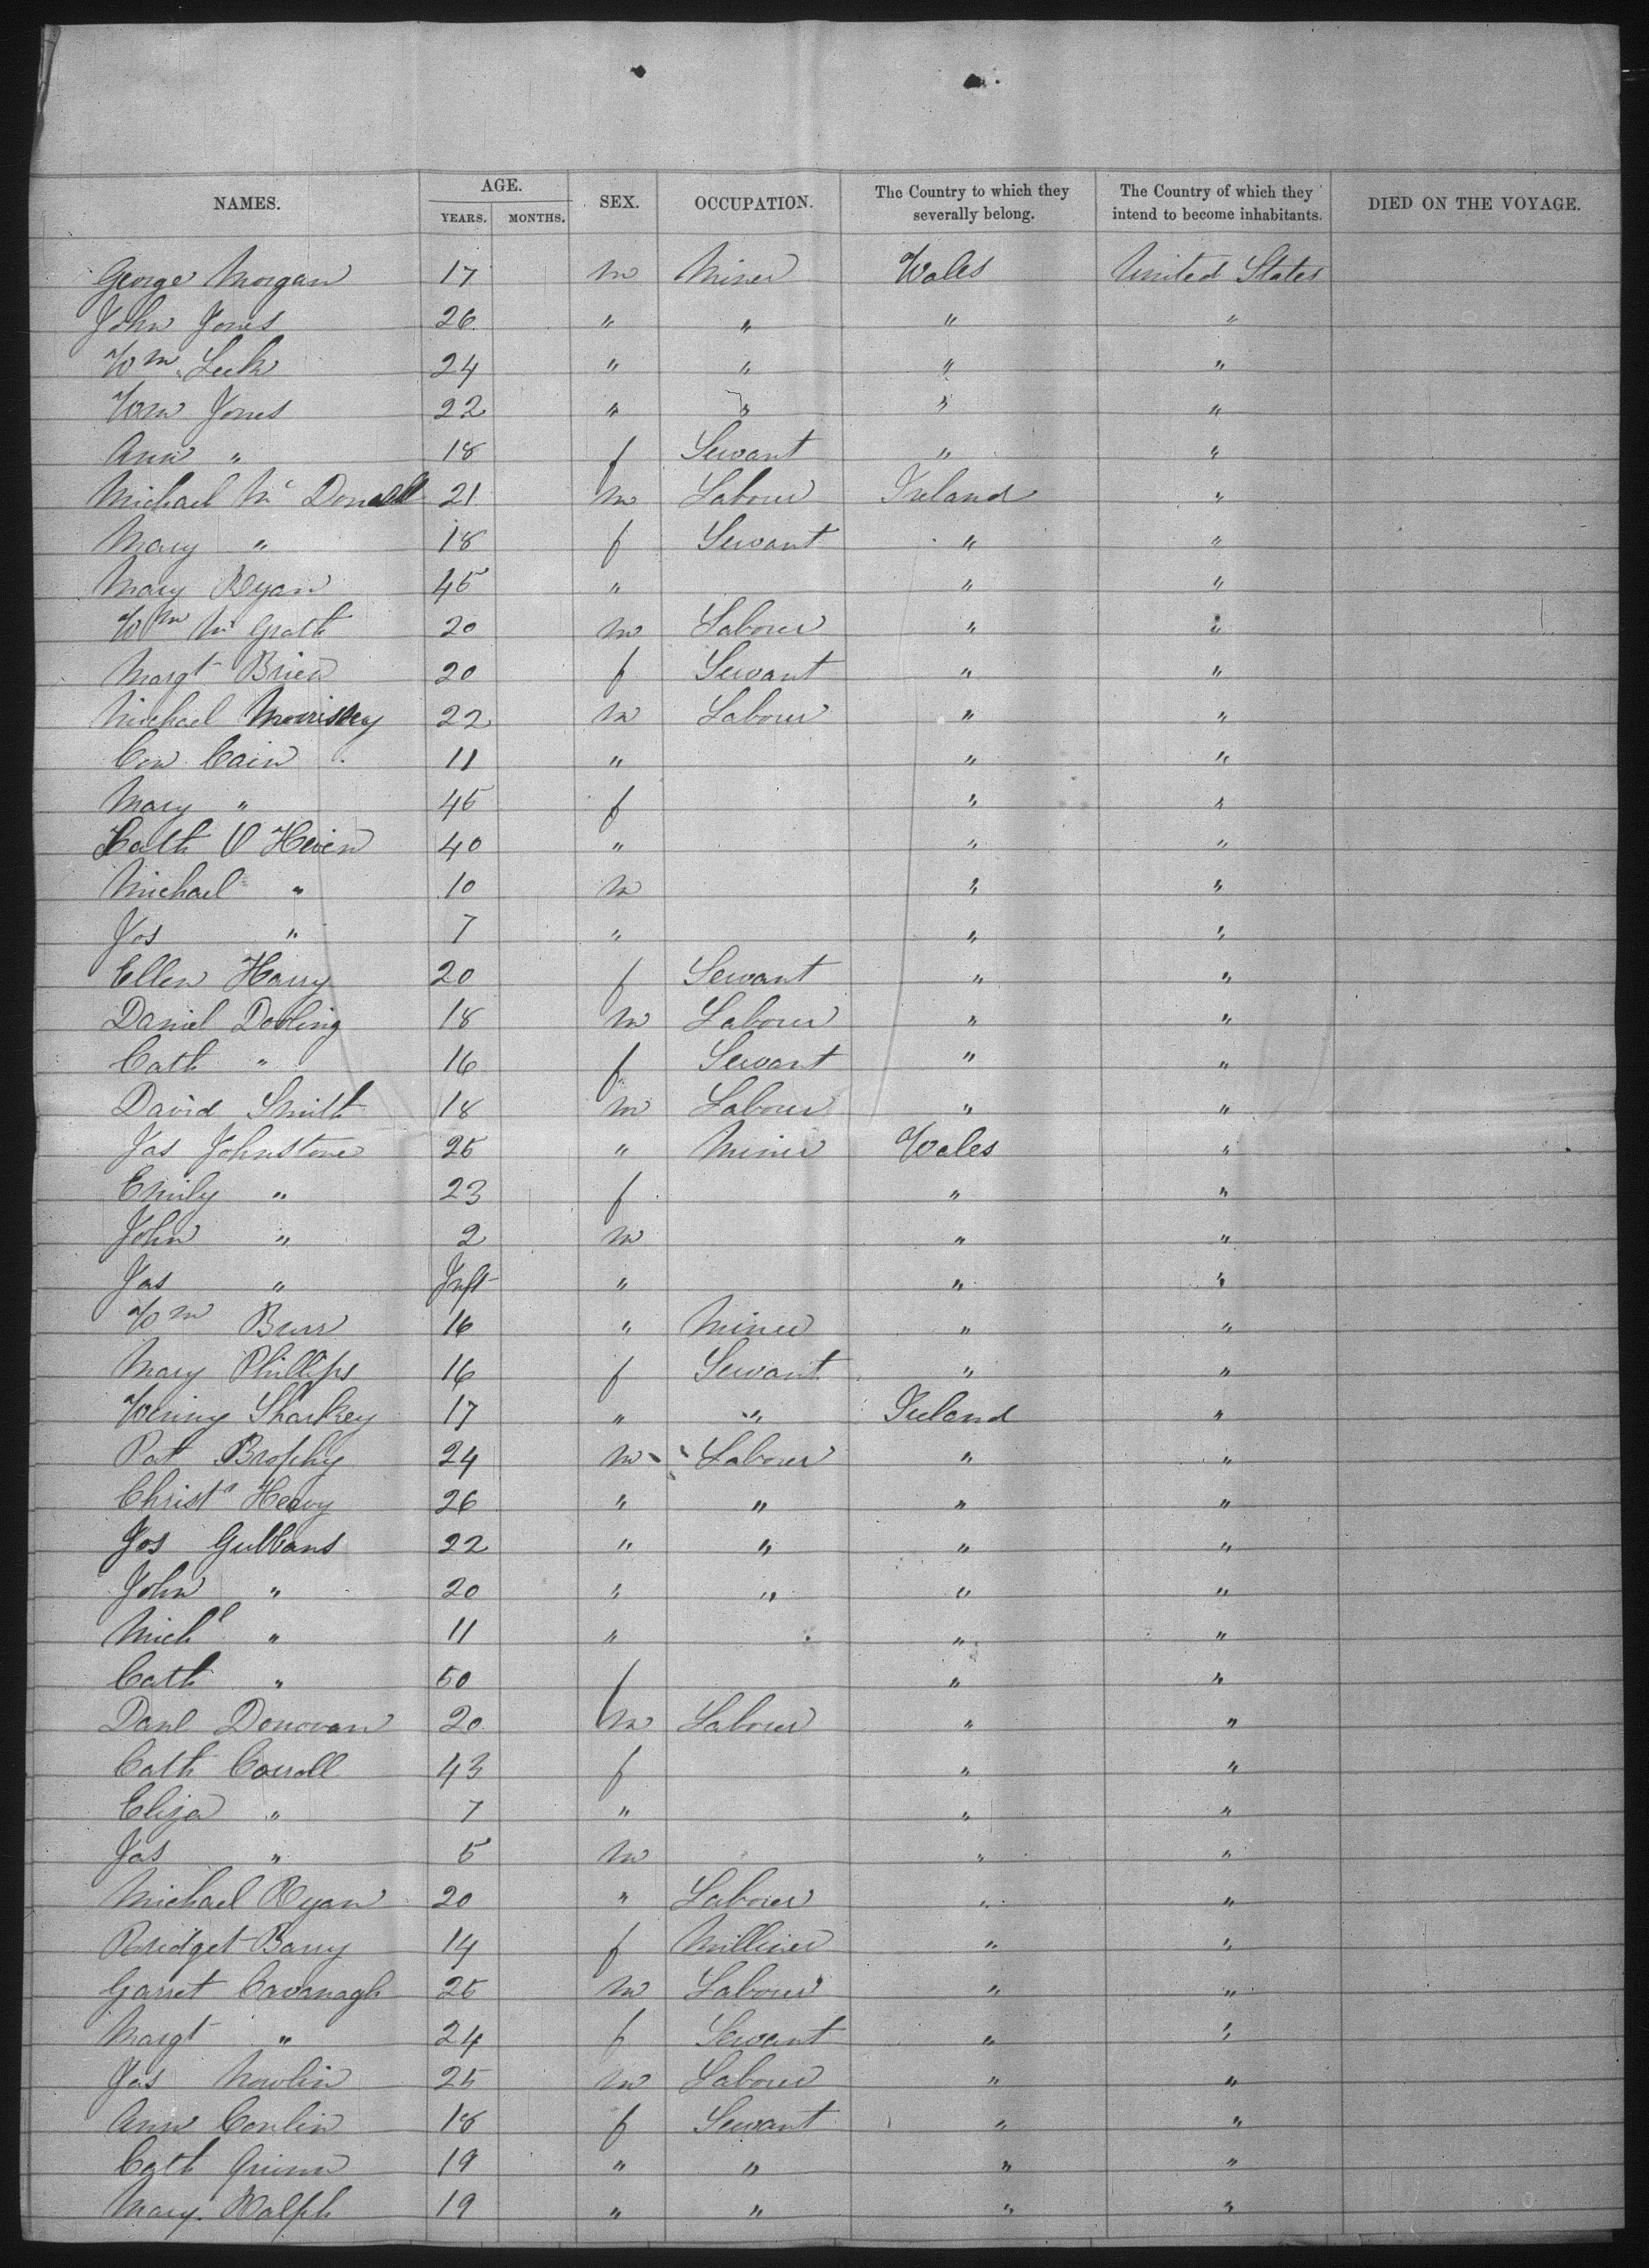 NAMES. AGE. SEX. OCCUPATION. The Country to which they severally belong. The Country of which they intend to become inhabitants. DIED ON THE VOYAGE.
YEARS. MONTHS.
George Morgan 17 m Miner Wales United States
John Jones 26 " " " "
Wm 24 " " " "
Wm Jones 22 " " " "
Ann " 18 f Servant " "
Michael Mc Donald 21 m Labourer Ireland "
Mary " 18 f Servant " "
Mary Ryan 45 " " "
Wm Mc Grath 20 m Labourer " "
Margt Brien 20 f Servant " "
Michael Morrissey 22 m Labourer " "
Con Cain 11 " " "
Mary " 45 f " "
Cath O 40 " " "
Michael " 10 m " "
Jos " 7 " " "
Ellen Harry 20 f Servant " "
Daniel Dooling 18 m Labourer " "
Cath " 16 f Servant " "
David Smith 18 m Labourer " "
Jas Johnstone 25 " Miner Wales "
Emily " 23 f " "
John " 2 m " "
Jas " Inft " " "
Wm Burr 16 " Miner " "
Mary Phillips 16 f Servant " "
Winny Sharkey 17 " " Ireland "
Pat Brophy 24 m Labourer " "
Christr 26 " " " "
Jos Gubbans 22 " " " "
John " 20 " " " "
Michl " 11 " " "
Cath " 50 f " "
Danl Donovan 20 m Labourer " "
Cath Carroll 43 f " "
Eliza " 7 " " "
Jas " 5 m " "
Michael Ryan 20 " Labourer " "
Bridget Barry 14 f Milliner " "
Garret Cavanagh 25 m Labourer " "
Margt " 24 f Servant " "
Jas Nowlin 25 m Labourer " "
Ann Conlin 18 f Servant " "
Cath Quinn 19 " " " "
Mary Ralph 19 " " " "